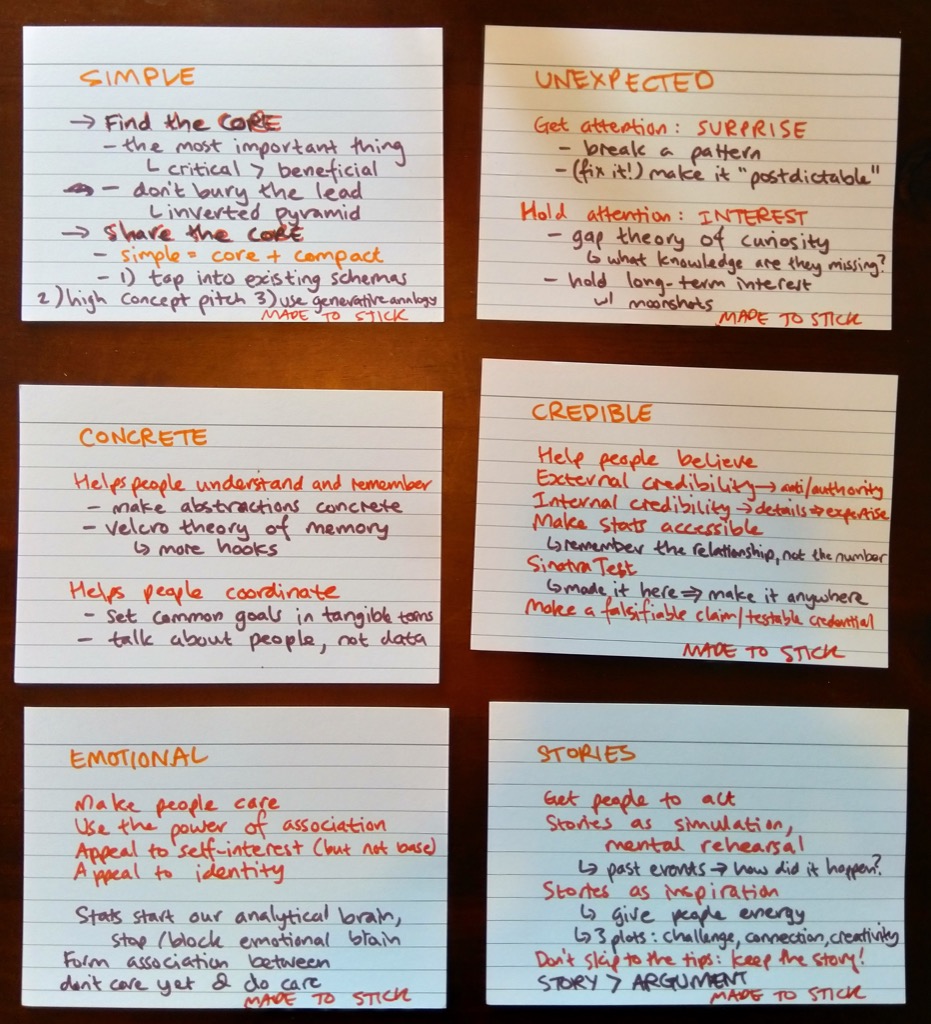 SIMPLE
→ Find the CORE
- the most important thing
↳ critical > beneficial
- don't bury the lead
↳ inverted pyramid
→ Share the CORE
- simple = core + compact
- 1) tap into existing schemas
2) high concept pitch 3) use generative analogy
MADE TO STICK
UNEXPECTED
Get attention: SURPRISE
- break a pattern
- (fix it!) make it "postdictable"
Hold attention: INTEREST
- gap theory of curiosity
↳ what knowledge are they missing?
- hold long-term interest
w/ moonshots
MADE TO STICK
CONCRETE
Helps people understand and remember
- make abstractions concrete
- velcro theory of memory
↳ more hooks
Helps people coordinate
- set common goals in tangible terms
- talk about people, not data
CREDIBLE
Help people believe
External credibility → anti/authority
Internal credibility → details ⇒ expertise
Make stats accessible
↳ remember the relationship, not the number
Sinatra Test
↳ made it here ⇒ make it anywhere
Make a falsifiable claim/testable credential
MADE TO STICK
EMOTIONAL
Make people care
Use the power of association
Appeal to self-interest (but not base)
Appeal to identity
Stats start our analytical brain,
stop/block emotional brain
Form association between
don't care yet & do care
MADE TO STICK
STORIES
Get people to act
Stories as simulation,
mental rehearsal
↳ past events → how did it happen?
Stories as inspiration
↳ give people energy
↳ 3 plots: challenge, connection, creativity
Don't skip to the tips: keep the story!
STORY > ARGUMENT
MADE TO STICK